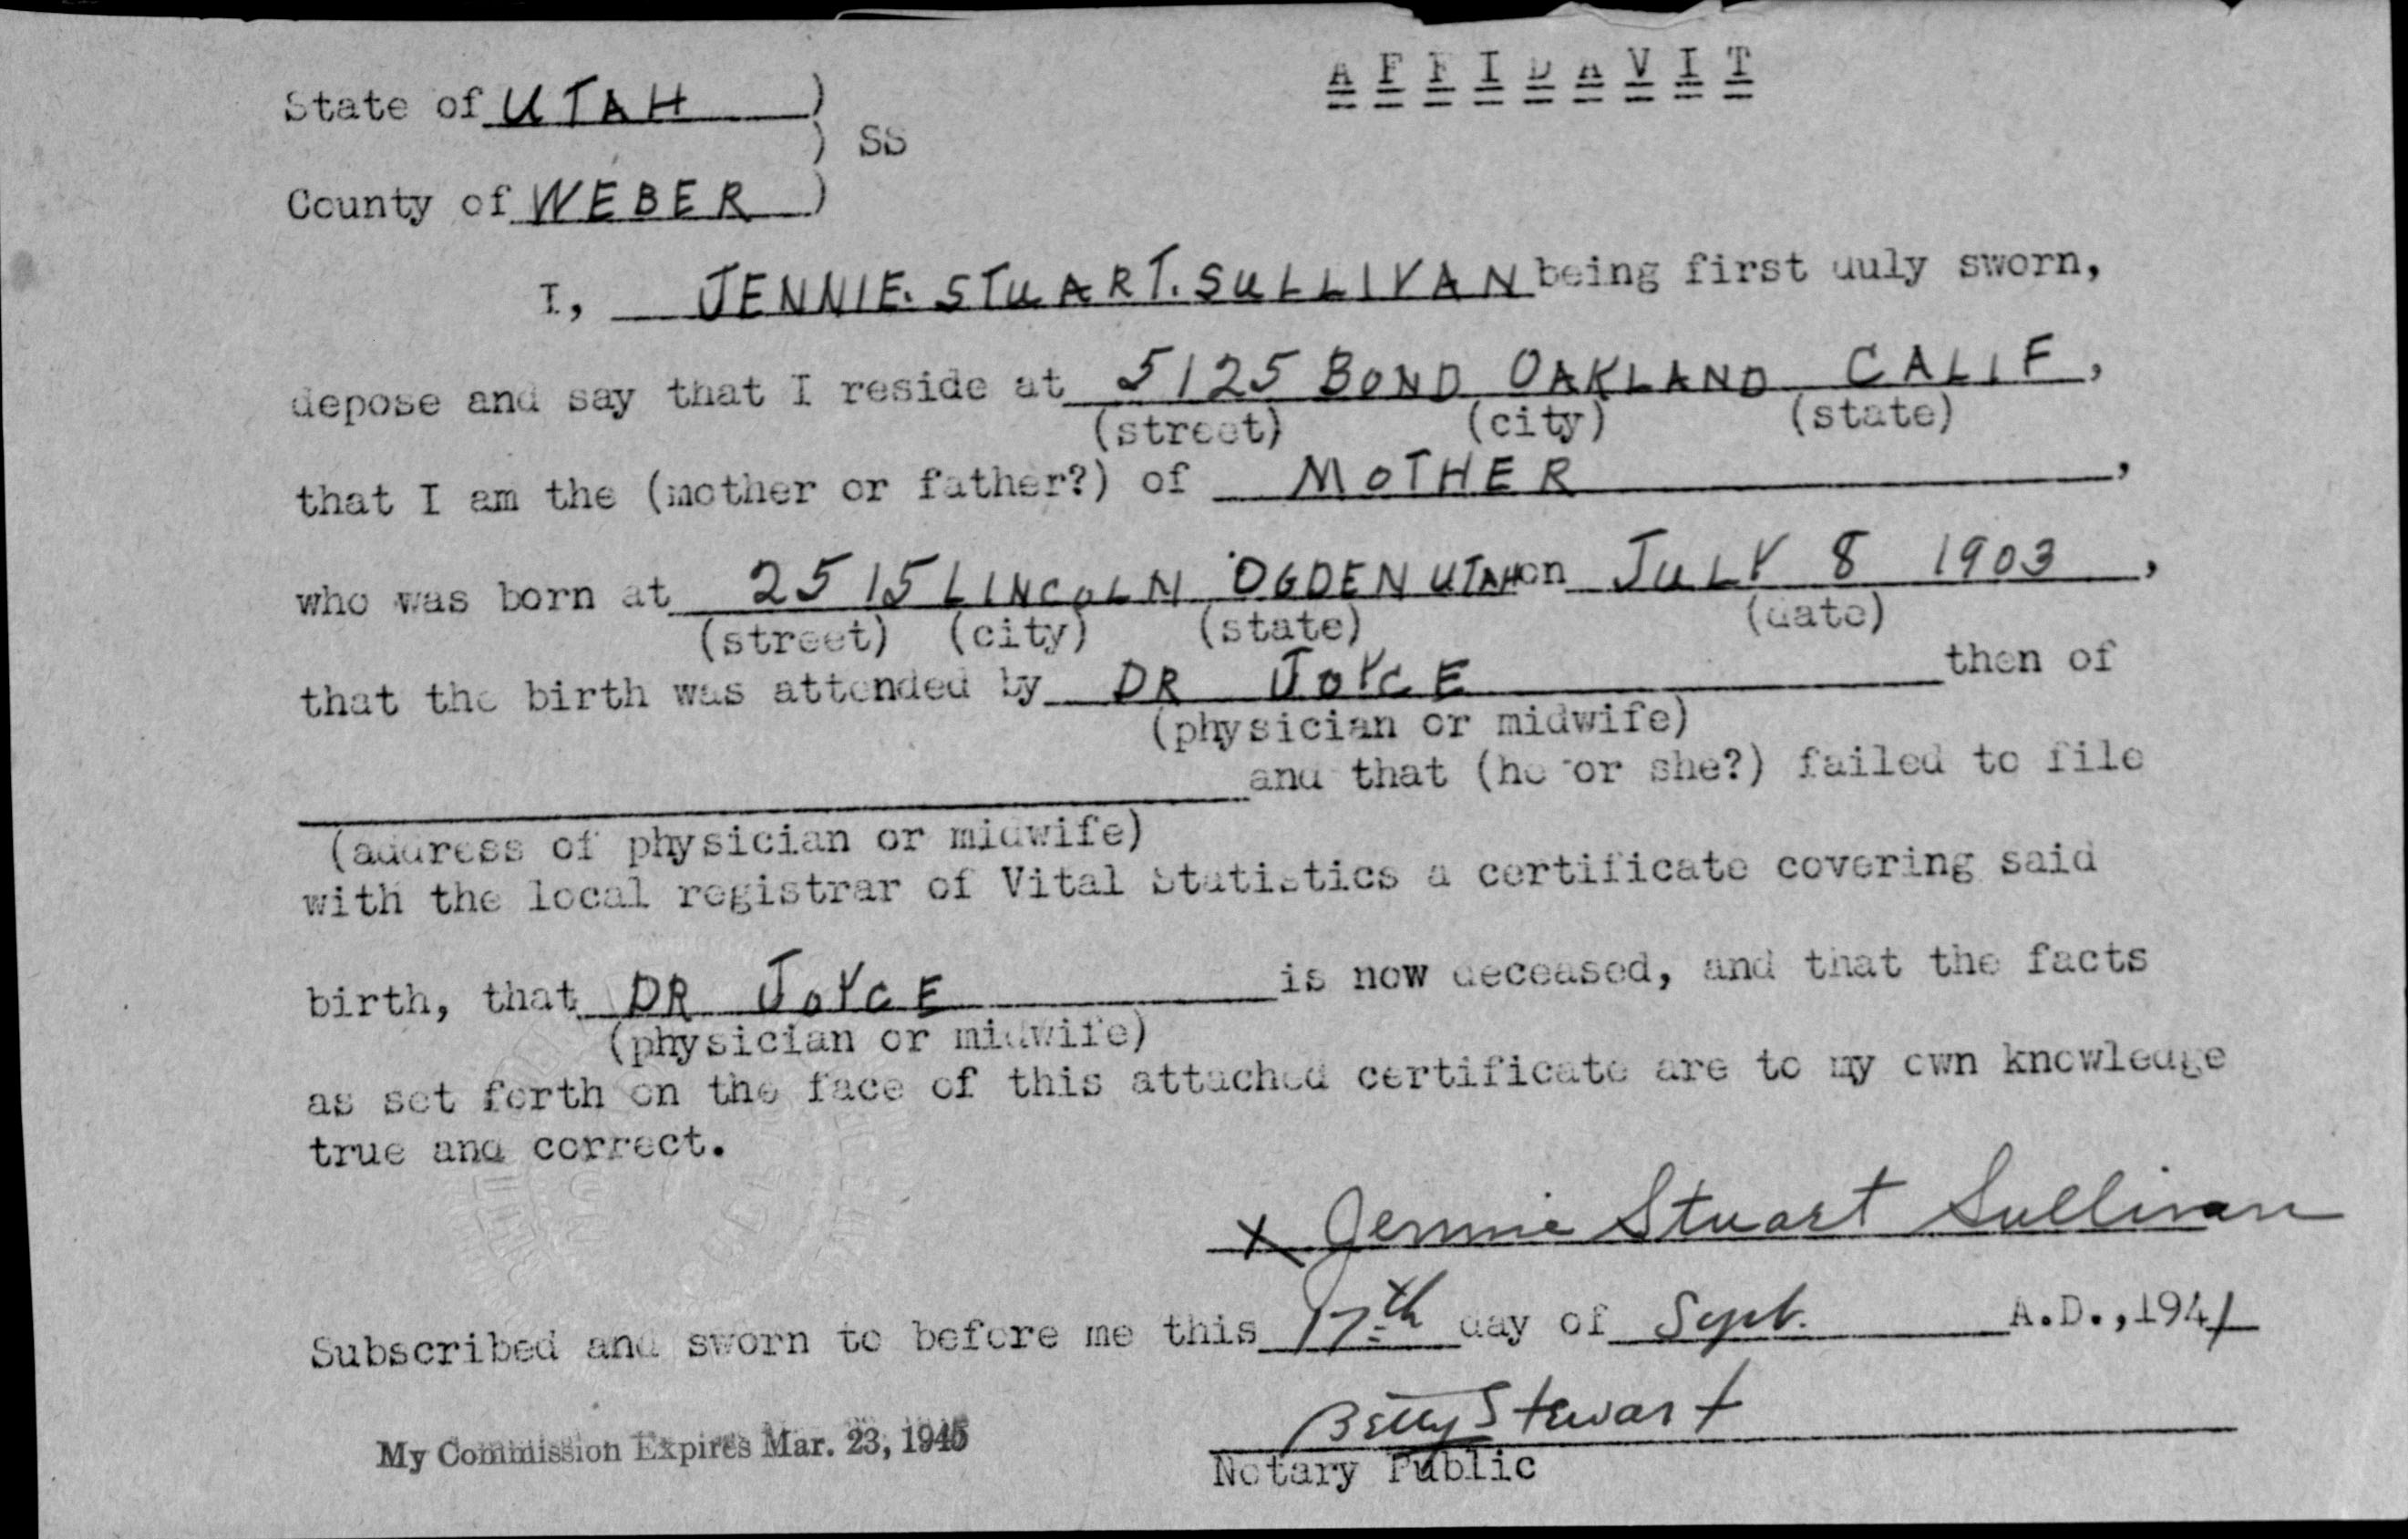 AFFIDAVIT
State of UTAH )
) SS
County of WEBER )
I, JENNIE. STUART. SULLIVAN being first duly sworn,
depose and say that I reside at 5125 BOND OAKLAND CALIF,
(street) (city) (state)
that I am the (mother or father?) of MOTHER,
who was born at 2515 LINCOLN OGDEN UTAH on JULY 8 1903,
(street) (city) (state) (date)
that the birth was attended by DR JOYCE then of
(physician or midwife)
and that (he or she?) failed to file
(address of physician or midwife)
with the local registrar of Vital Statistics a certificate covering said
birth, that DR JOYCE is now deceased, and that the facts
(physician or midwife)
as set forth on the face of this attached certificate are to my own knowledge
true and correct.
X Jennie Stuart Sullivan
Subscribed and sworn to before me this 17th day of Sept. A.D., 1941
Betty Stewart
My Commission Expires Mar. 23, 1945
Notary Public